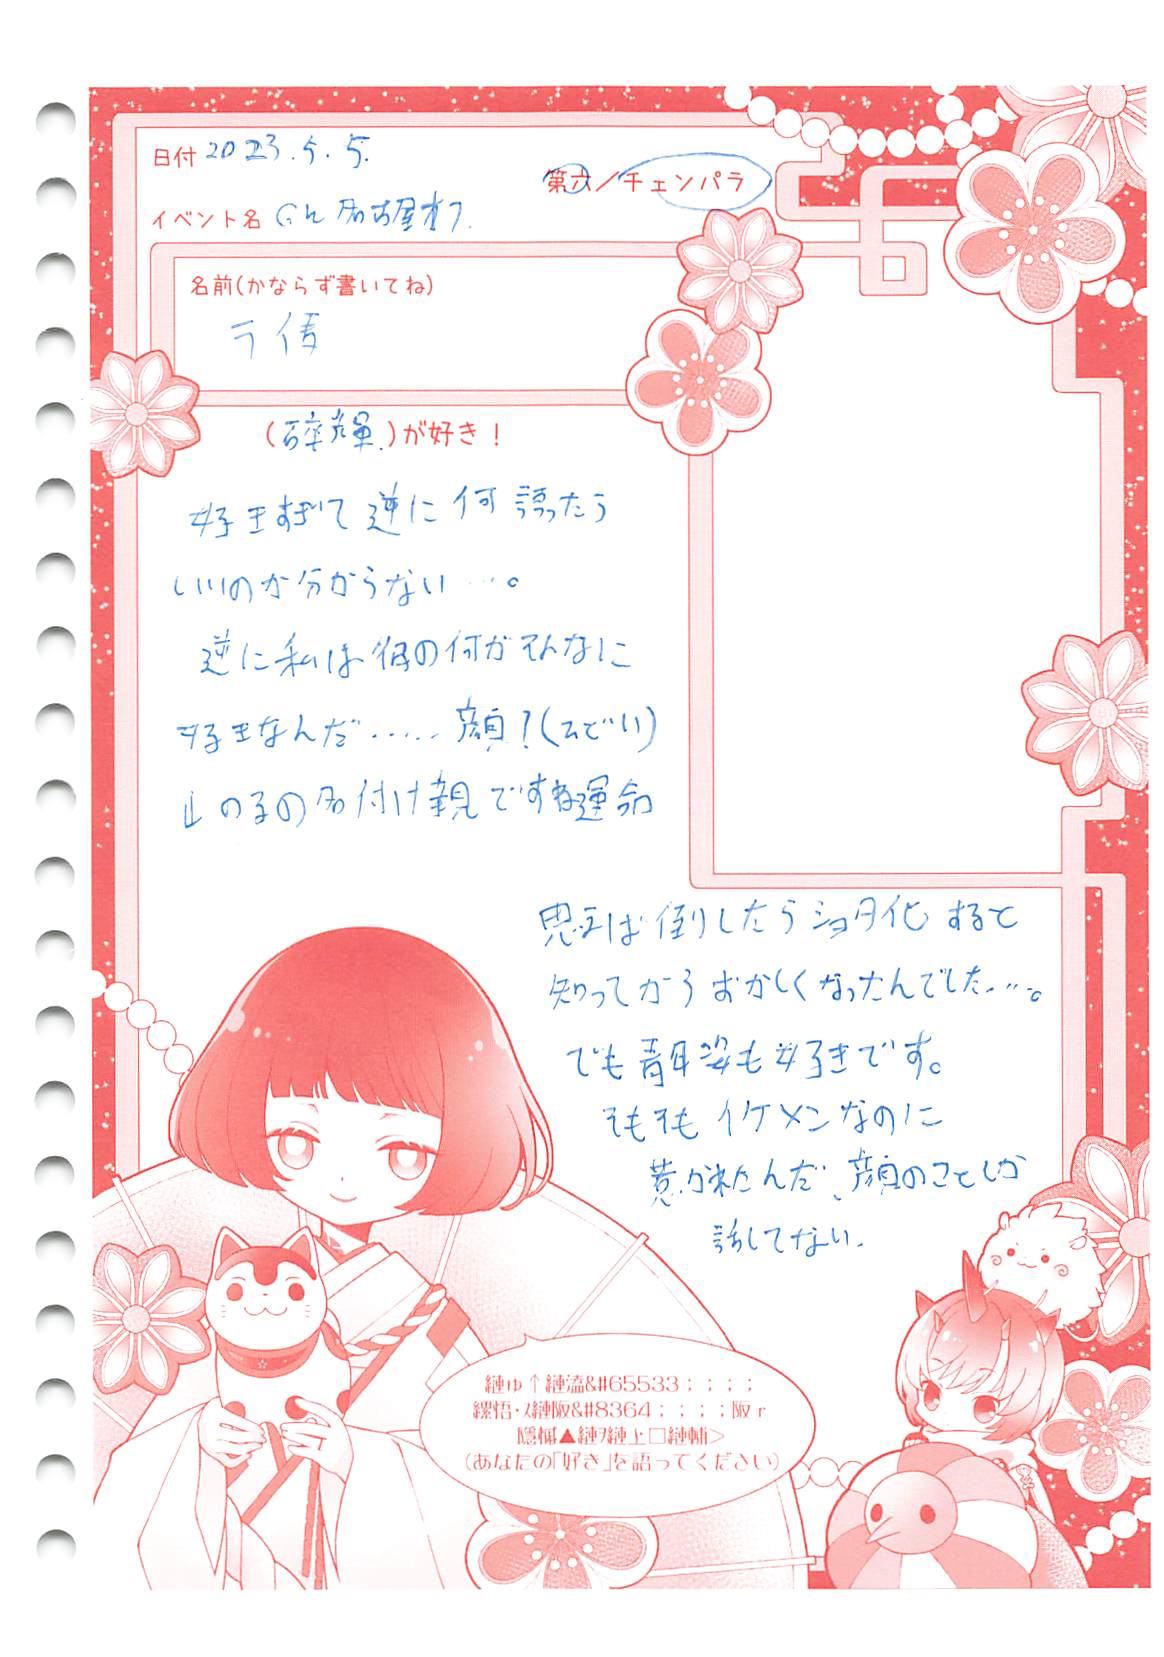 日付 2023.5.5.
第六／チェンパラ
イベント名 GL名古屋オフ.
名前(かならず書いてね)
ラ倩
(砕輝.)が好き！
好きすぎて逆に何語ったら
いいのか分からない…。
逆に私は彼の何がそんなに
好きなんだ…… 顔？(ひどい)
の名付け親ですね運命
思えば倒したらショタ化すると
知ってからおかしくなったんでした…。
でも青年姿も好きです。
そもそもイケメンなのに
惹かれたんだ、顔のことしか
話してない.
縺ゅ↑縺溘&#65533；；；；
縲悟･ｽ縺阪&#8364；；；；阪ｒ
隱槭▲縺ｦ縺上□縺輔>
(あなたの「好き」を語ってください)